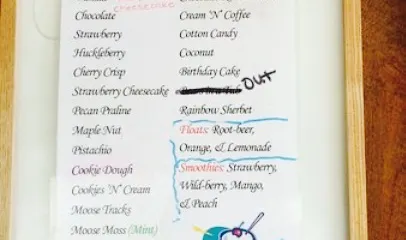 cheesecake
Chocolate
Strawberry
Huckleberry
Cherry Crisp
Strawberry Cheesecake
Pecan Praline
Maple Nut
Pistachio
Cookie Dough
Cookies "N" Cream
Moose Tracks
Moose Moss (Mint)
Cream "N" Coffee
Cotton Candy
Coconut
Birthday Cake
OUT
Rainbow Sherbet
Floats: Root-beer,
Orange, & Lemonade
Smoothies: Strawberry,
Wild-berry, Mango,
& Peach